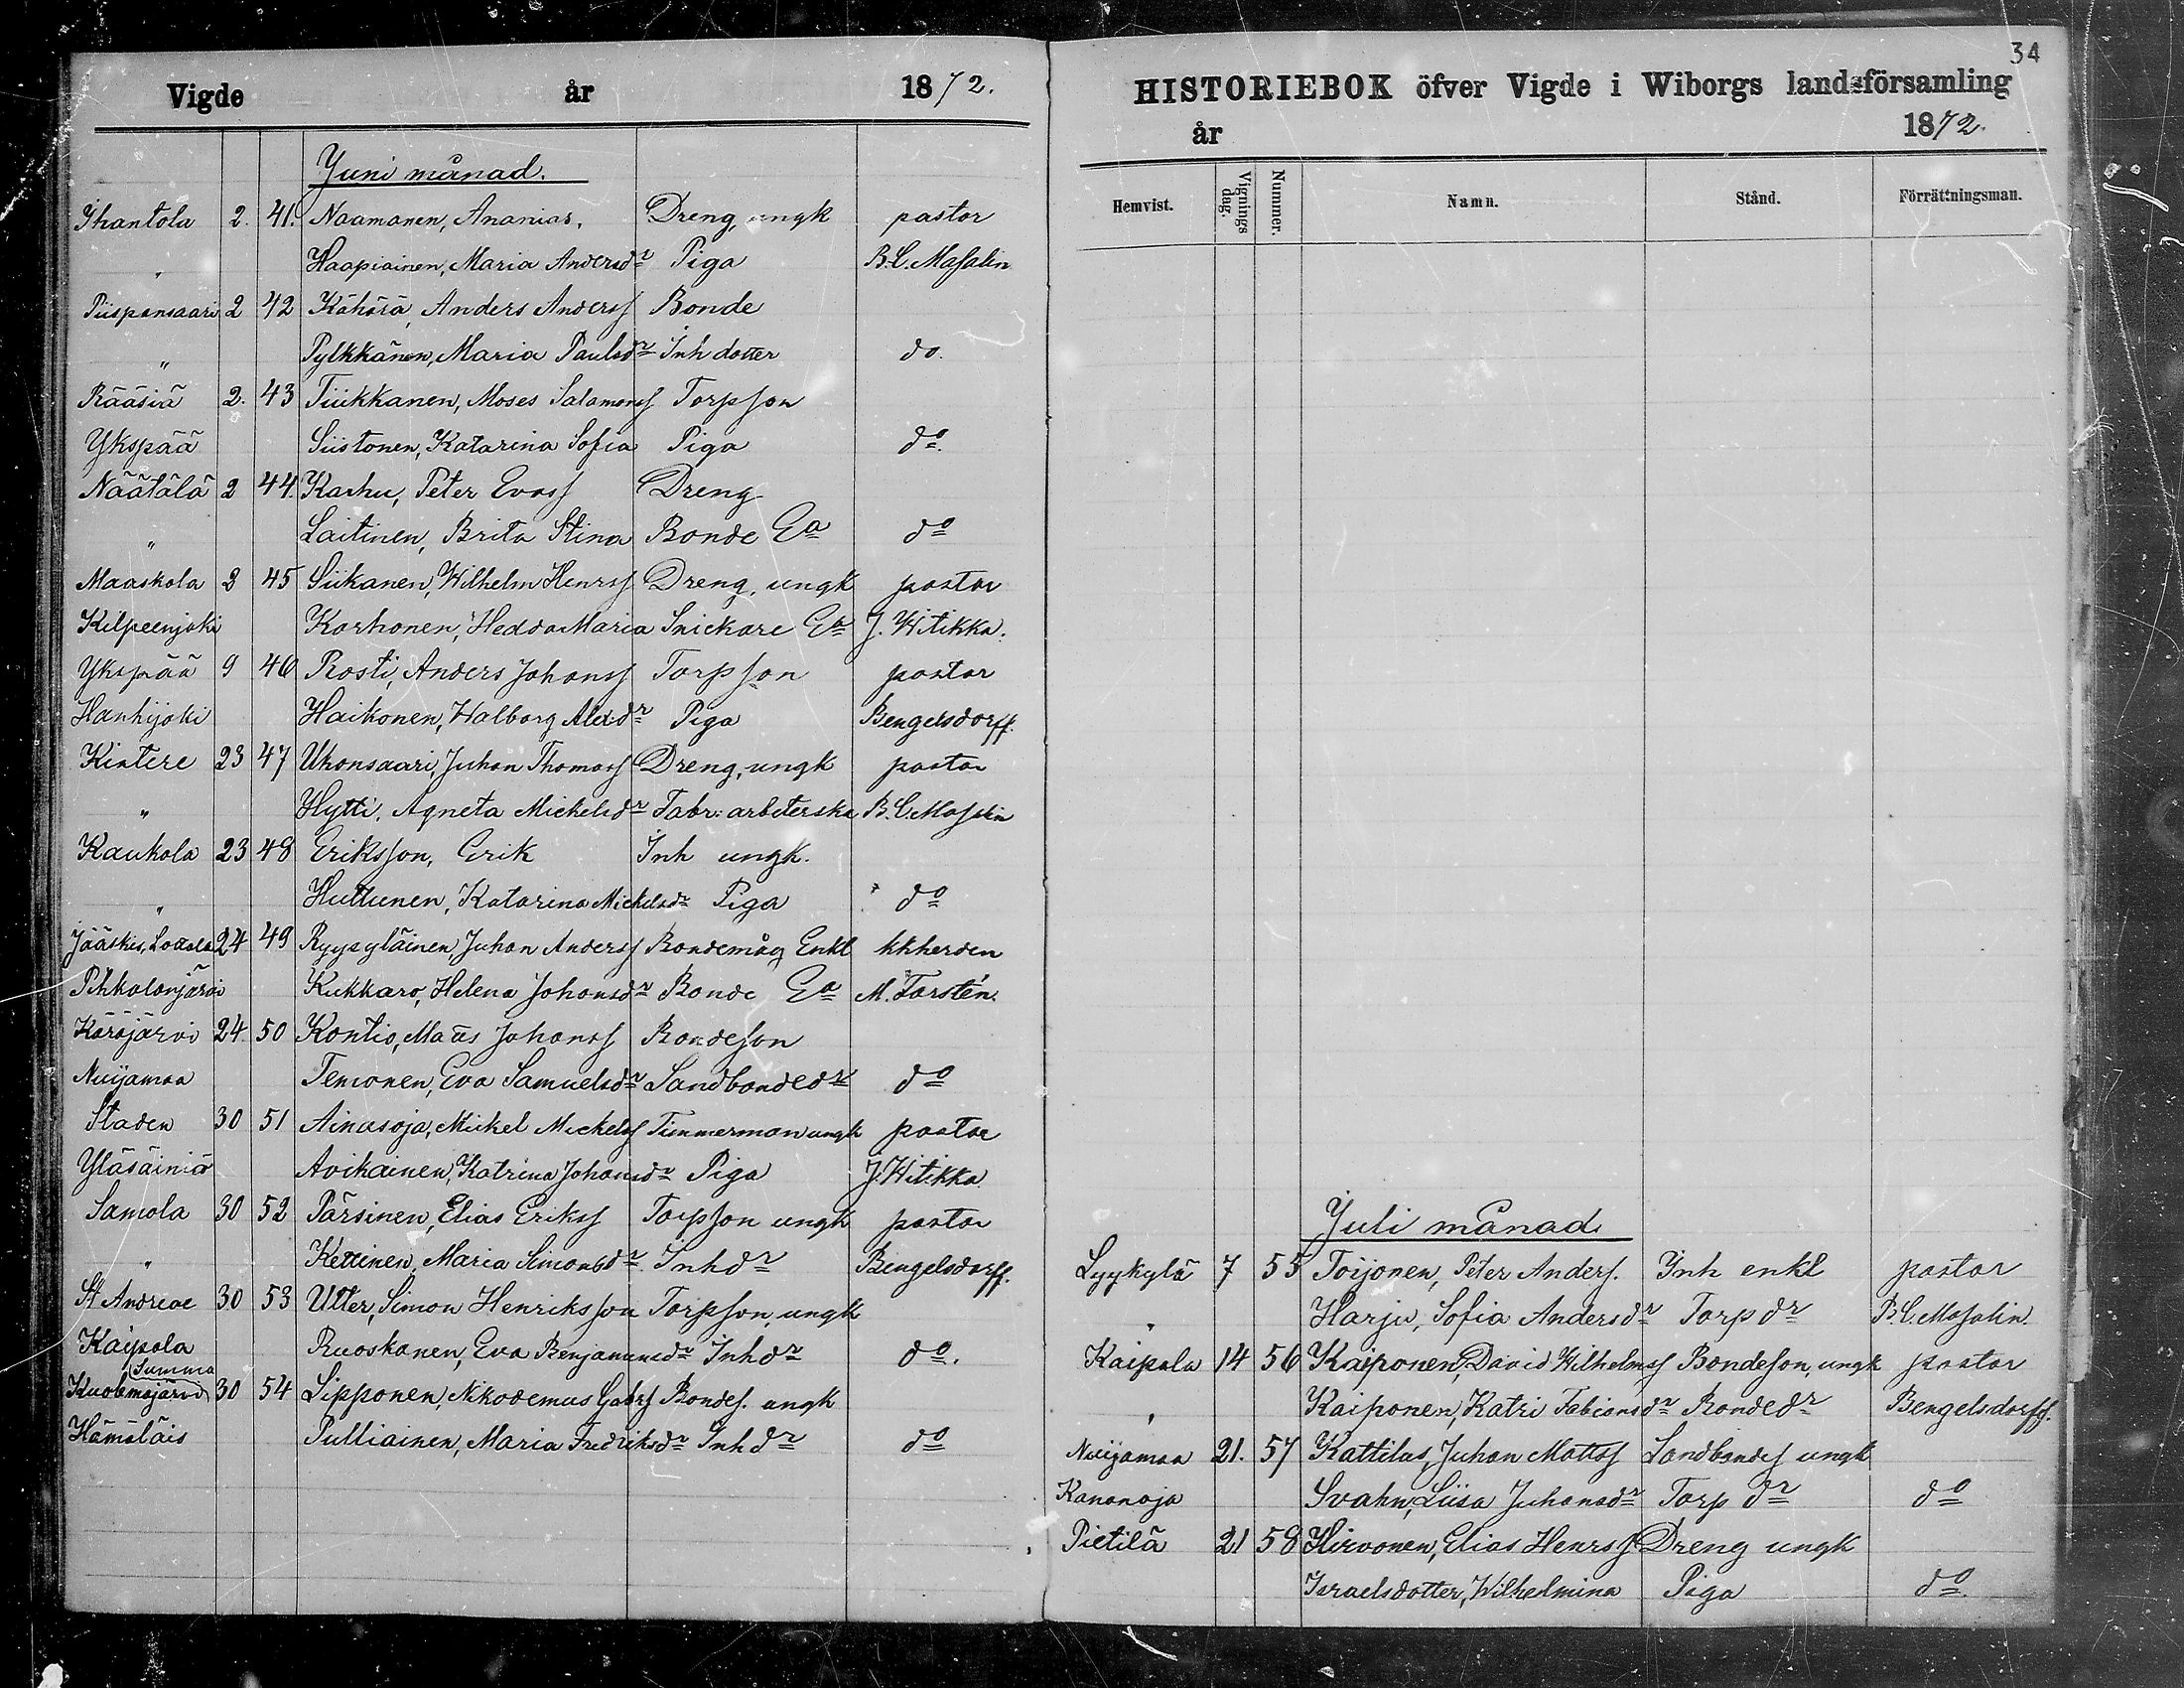 Vigde år 1872.
Juni månad.
Ihantola 2. 41. Naamanen, Ananias, Dreng, ungk pastor
" Haapiainen, Maria Andersdr Piga B.C. Masalin
Piispansaari 2 42 Kähärä, Anders Anderss Bonde
" Pylkkänen, Maria Paulsdr Inh dotter do.
Rääsiä 2. 43 Tiukkanen, Moses Salomonss Torpson
Ykspää Siistonen, Katarina Sofia Piga do.
Näätälä 2 44. Karhu, Peter Evass Dreng
" Laitinen, Brita Stina Bonde Ea do
Maaskola 2 45 Siikanen, Wilhelm Henrss Dreng, ungk pastor
Kilpeenjoki Korhonen, Hedda Maria Snickare Ea J. Witikka.
Ykspää 9 46 Rosti, Anders Johanss Torpson pastor
Hanhijoki Haikonen, Walborg Alex:dr Piga Bengelsdorff.
Kintere 23 47 Uhonsaari, Juhan Thomass Dreng, ungk pastor
" Hytti, Agneta Mickelsdr Fabr: arbeterska B.C. Masalin
Kaukola 23 48 Eriksson, Erik Inh ungk.
" Huttunen, Katarina Mickelsdr Piga do
Jääskis, 24 49 Ryypyläinen, Juhan Anderss Bondemåg Enkl kkherden
Pihkalanjärvi Kukkaro, Helena Johansdr Bonde Ea M. Forstén.
Käräjärvi 24. 50 Kontio, Matts Johanss Bondeson
Nuijamaa Temonen, Eva Samuelsdr Landbondedr do
Staden 30 51 Ainasoja, Mickel Mickelss Timmerman ungk pastor
Yläsäiniä Avikainen, Katrina Johansdr Piga J. Witikka
Samola 30 52 Pärsinen, Elias Erikss Torpson ungk pastor
" Kettinen, Maria Simonsdr. Inhdr Bengelsdorff.
St Andreae 30 53 Utter, Simon Henriksson Torpson, ungk
Kaipola Ruoskanen, Eva Benjaminsdr Inhdr do.
Summa
Kuolemajärvi 30 54 Sipponen, Nikodemus Gabrs Bondes. ungk
Hämäläis Pulliainen, Maria Fredriksdr Inhdr do
34
HISTORIEBOK öfver Vigde i Wiborgs landsförsamling
år 1872.
Hemvist. Vignings dag. Nummer. Namn. Stånd. Förrättningsman.
Juli månad.
Lyykylä 7 55 Toijonen, Peter Anders. Inh enkl pastor
" Harju, Sofia Andersdr Torpdr B.C. Masalin.
Kaipola 14 56 Kaiponen, David Wilhelmss Bondeson, ungk pastor
" Kaiponen, Katri Fabiansdr Bondedr Bengelsdorff.
Nuijamaa 21. 57 Kattilus, Juhan Mattss Landbondes ungk
Kananoja Svahn, Liisa Juhansdr Torp dr do
Pietilä 21 58 Hirvonen, Elias Henrss Dreng ungk
Israelsdotter, Wilhelmina Piga do.